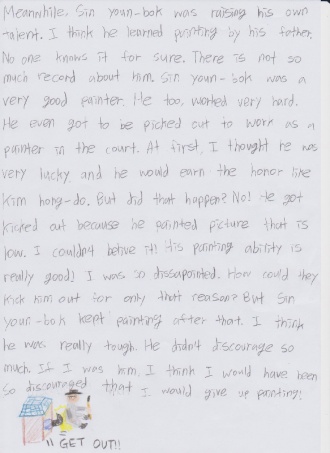 Meanwhile. Sin youn-bok was raising his own
talent. I think he learned painting by his father.
No one knows it for sure. There is not so
much record about him. Sin youn-bok was a
very good painter. He too, worked very hard.
He even got to be picked out to work as a
painter in the court. At first, I thought he was
very lucky and he would earn the honor like
Kim hong-do. But did that happen? No! He got
kicked out because he painted picture that is
low. I couldn't belive it! His painting ability is
really good! I was so dissapointed. How could they
kick him out for only that reason? But Sin
youn-bok kept painting after that. I think
he was really tough. He didn't discourage so
much. If I was him. I think I would have been
so discouraged that I would give up painting!
"GET OUT!!